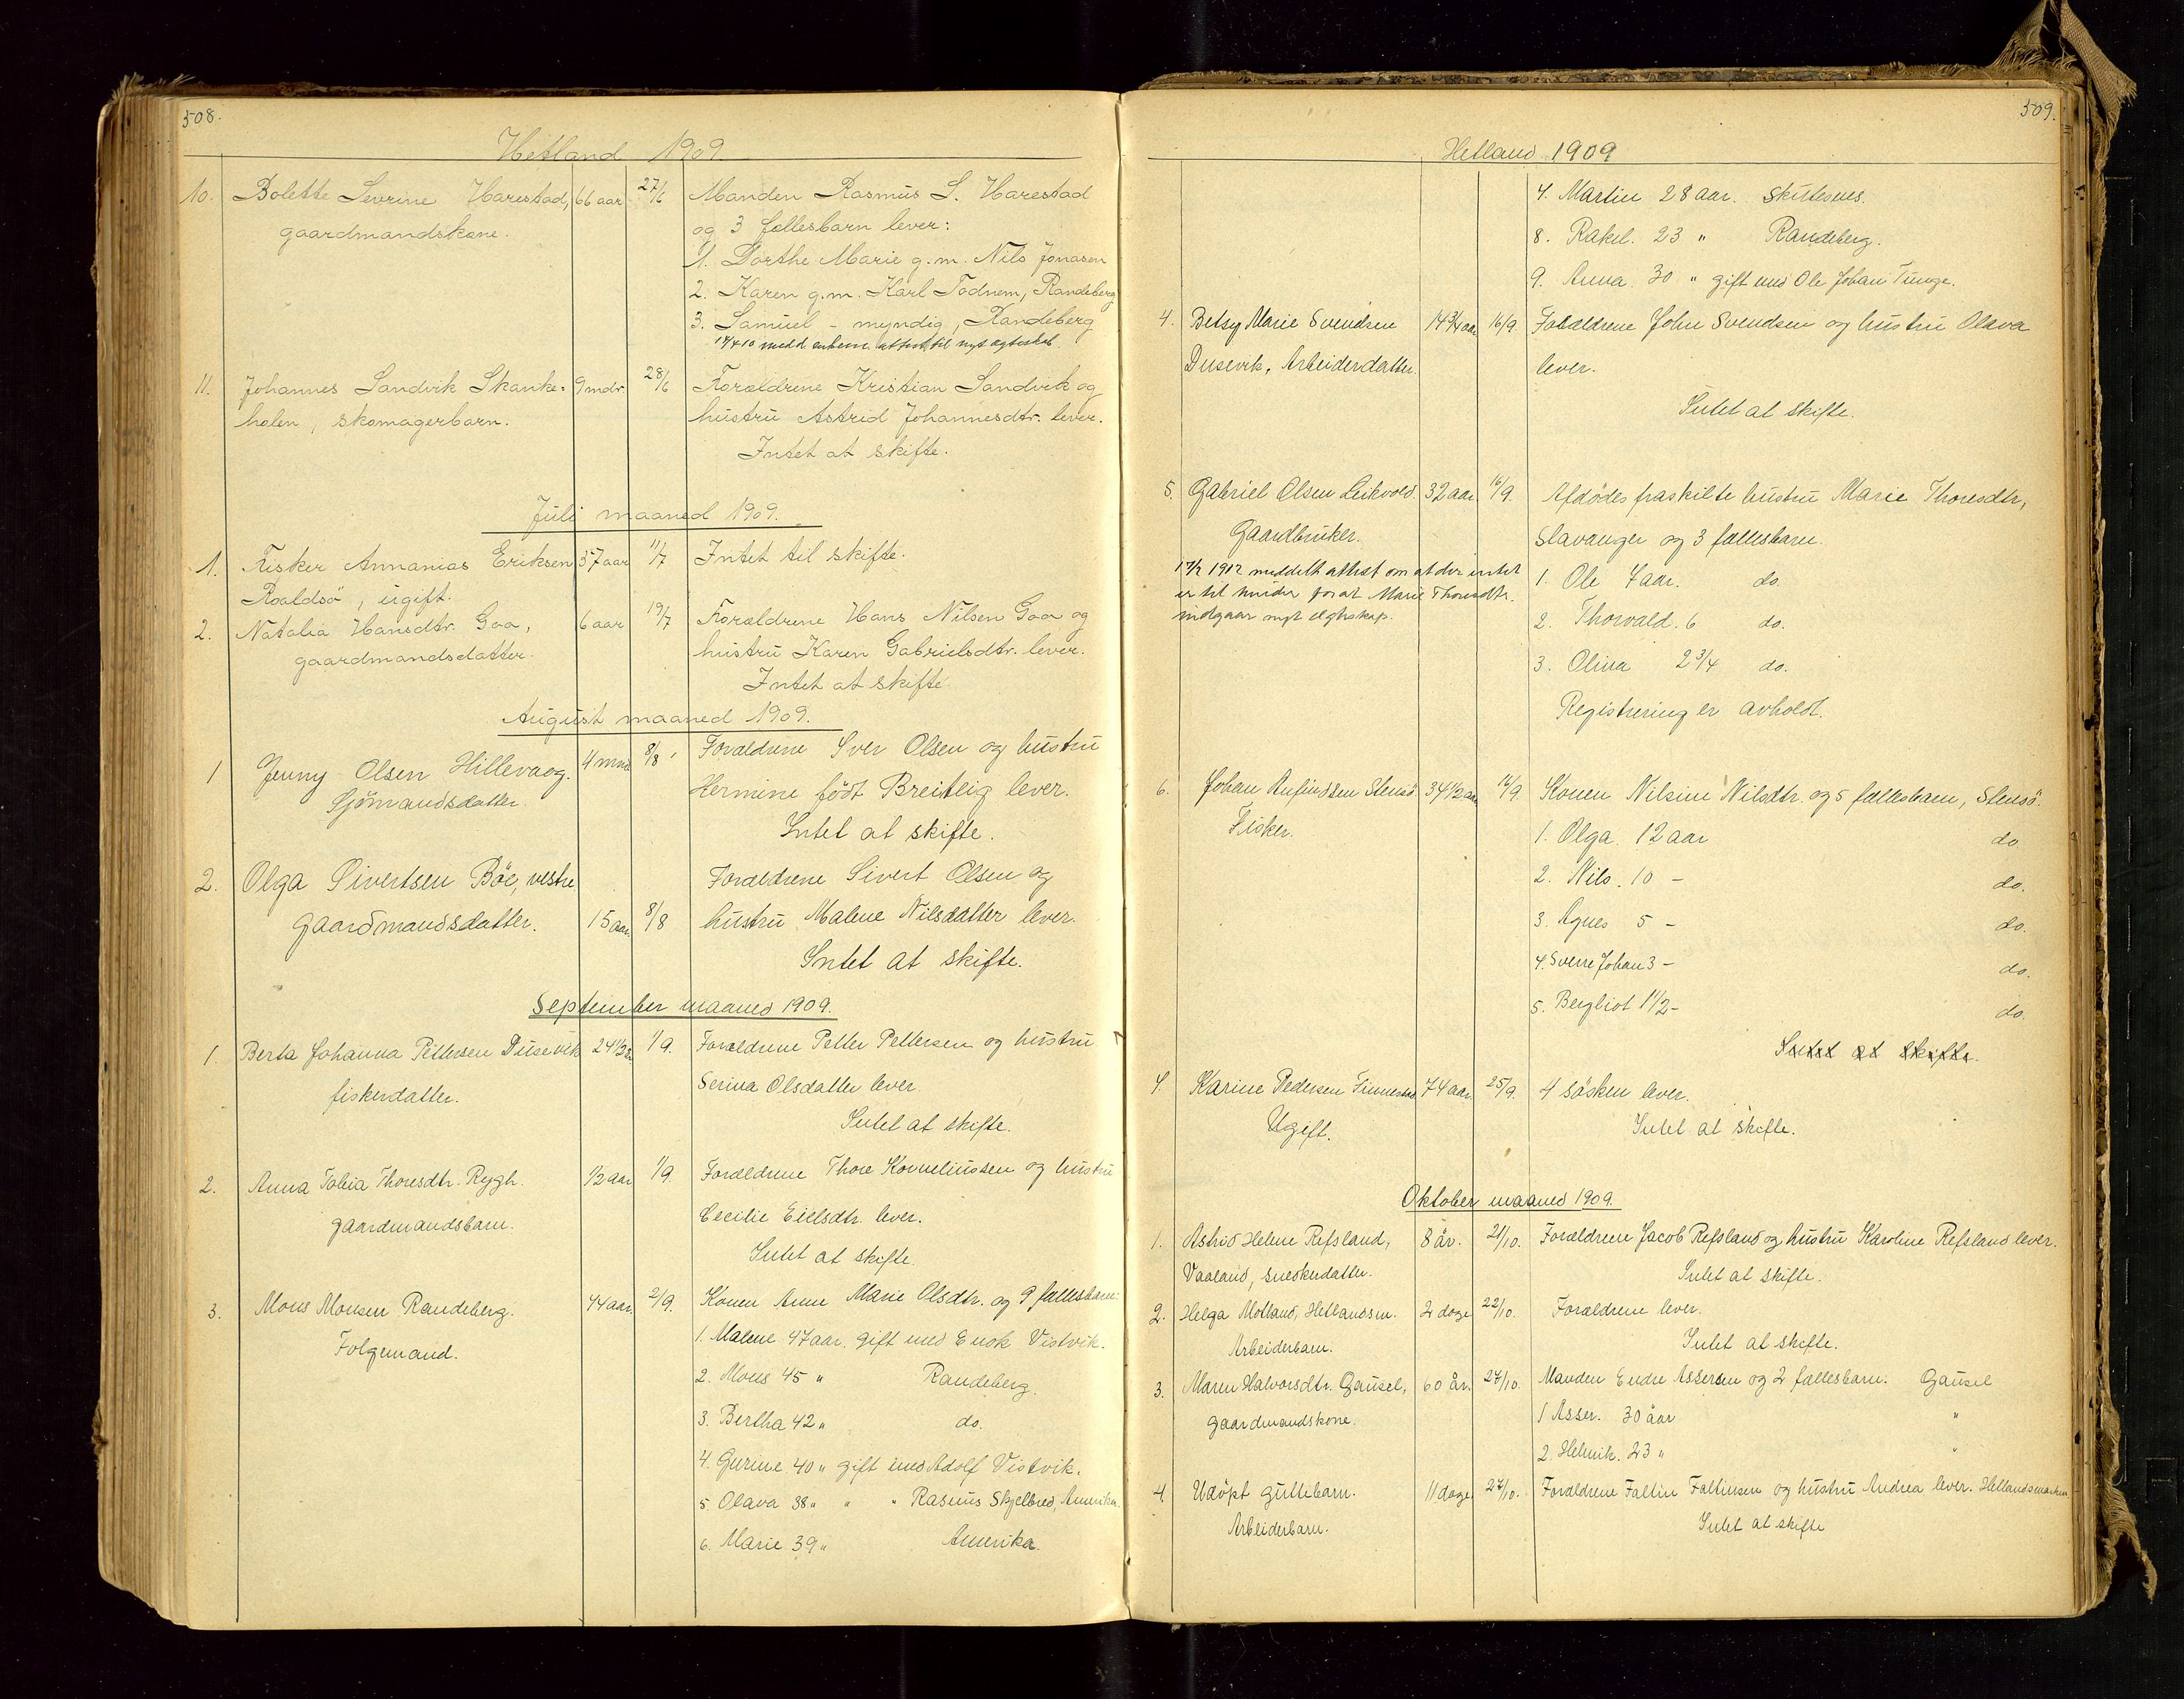 508.
Hetland 1909.
10. Bolette Severine Harestad, 66 aar 27/6 Manden Rasmus S. Harestad
gaardmandskone. og 3 fællesbarn lever:
1. Dorthe Marie g.m. Nils Jonasen
2. Karen g.m. Karl Todnem, Randeberg
3. Samuel - myndig, Randeberg
medd. enkem. attest til nyt ægteskab.
11. Johannes Sandvik Skanke- 9 mdr. 28/6 Forældrene Kristian Sandvik og
holen, skomagerbarn. hustru Astrid Johannesdtr. lever.
Intet at skifte.
Juli maaned 1909.
1. Fisker Annanias Eriksen 57 aar 11/7 Intet til skifte.
Roaldsö, ugift.
2. Natalia Hansdtr. Goa, 6 aar 19/7 Forældrene Hans Nilsen Goa og
gaardmandsdatter. hustru Karen Gabrielsdtr. lever.
Intet at skifte.
August maaned 1909.
1 Jenny Olsen Hillevaag. 4 mnd. 8/8 Forældrene Iver Olsen og hustru
Sjömandsdatter. Hermine født Breitlig lever.
Intet at skifte.
2. Olga Sivertsen Böe, vestre Forældrene Sivert Olsen og
gaardmandsdatter. 15 aar. 8/8 hustru Malene Nilsdatter lever.
Intet at skifte.
September maaned 1909.
1. Berta Johanna Pettersen Dusevik 24 1/2 a. 1/9. Forældrene Petter Pettersen og hustru
fiskerdatter. Serina Olsdatter lever.
Intet at skifte.
2. Anna Tolina Thoresdtr. Rygh. 1/2 aar 1/9. Forældrene Thore Korneliussen og hustru
gaardmandsbarn. Cecilie Eielsdtr. lever.
Intet at skifte.
3. Mons Monsen Randeberg. 74 aar. 2/9. Konen Anne Marie Olsdtr. og 9 fællesbarn:
Folgemand. 1. Malene 47 aar. gift med Enok Vistvik.
2. Mons 45 " Randeberg.
3. Bertha 42 " do.
4. Gurine 40 " gift med Adolf Vistvik.
5. Olava 38 " " " Rasmus Skjelbred, Amerika.
6. Marie 39 " Amerika.
509.
Hetland 1909
7. Martin 28 aar. Skudesnes.
8. Rakel. 23 " Randeberg.
9. Anna 30 " gift med Ole Johan Tunge.
4. Betsy Marie Svendsen 14 3/4 aar 16/9. Forældrene John Svendsen og hustru Olava
Dusevik, Arbeiderdatter. lever.
Intet at skifte.
5. Gabriel Olsen Leikvold. 32 aar 16/9. Afdødes fraskilte hustru Marie Thoresdtr,
Gaardbruker. Stavanger og 3 fællesbarn.
17/2 1912 meddelt attest om at der intet 1. Ole 7 aar. do.
er til hinder for at Marie Thoresdtr. 2. Thorvald. 6 do.
indgaar nyt ægteskap. 3. Olina 2 3/4 do.
Registrering er avholdt.
6. Johan Anfindsen Stensö 34 1/2 aar 16/9. Konen Nilsine Nilsdtr. og 5 fællesbarn, Stensö.
Fisker. 1. Olga. 12 aar do
2. Nils. 10 - do.
3. Agnes 5 - do.
4. Sverre Johan 3 - do.
5. Bergliot 1 1/2 - do.
Intet at skifte.
7. Karine Pedersen Finnestad 74 aar. 25/9. 4 søsken lever.
Ugift. Intet at skifte.
Oktober maaned 1909.
1. Astrid Helene Refsland, 8 år. 21/10. Forældrene Jacob Refsland og hustru Karoline Refsland lever.
Vaaland, snedkerdatter. Intet at skifte.
2. Helga Motland, Hetlandsm. 2 dage 22/10. Forældrene lever.
Arbeiderbarn. Intet at skifte.
3. Maren Halvorsdtr. Gausel, 60 år. 27/10. Manden Endre Assersen og 2 fællesbarn. Gausel
gaardmandskone. 1 Asser. 30 aar "
2. Helmik. 23 " "
4. Udöpt guttebarn. 11 dage 27/10. Forældrene Faltin Faltinsen og hustru Andrea lever. Hetlandsmarken
Arbeiderbarn. Intet at skifte